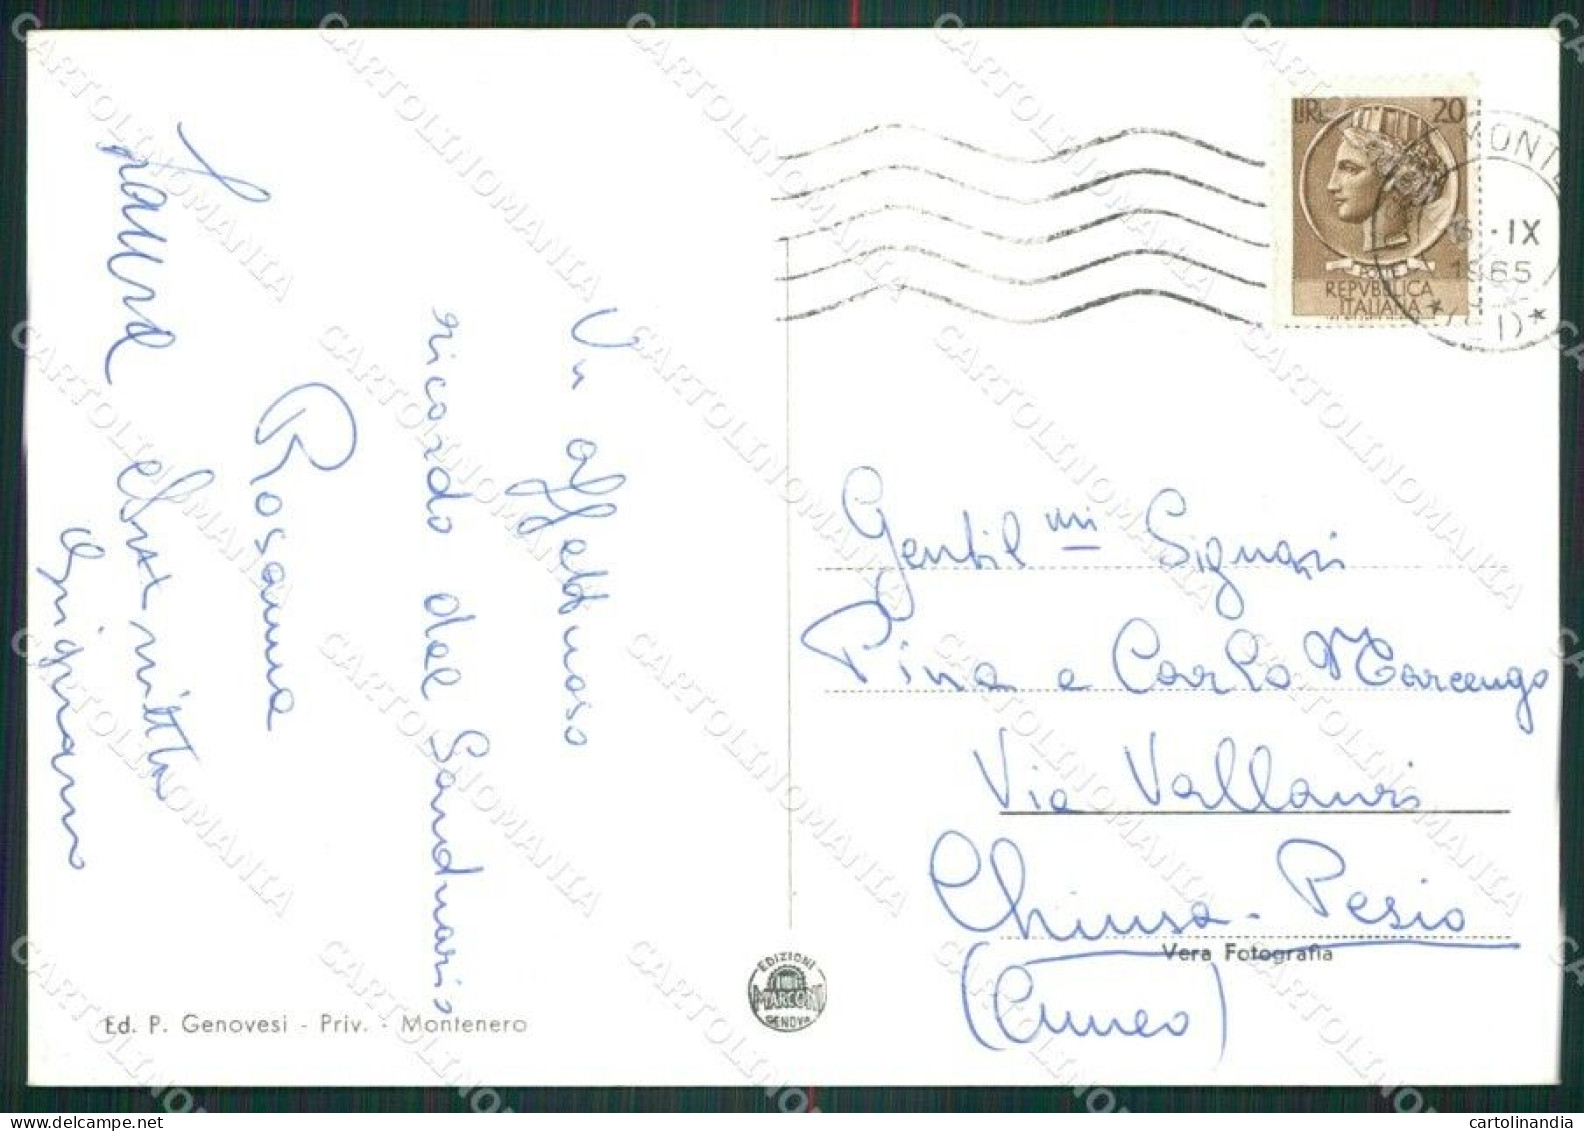 Un affettuoso
ricordo del Santuario
Rosanna
Laura
LIRE 20
POSTE
REPVBBLICA
ITALIANA
MONTE
6 -IX
1965
Gentil mi Signori
Pina e Carlo Marcengo
Via Vallauri
Chiusa-Pesio
(Cuneo)
Vera Fotografia
EDIZIONI
MARCONI
GENOVA
Ed. P. Genovesi - Priv. - Montenero
CARTOLINOMANIA
cartolinandia